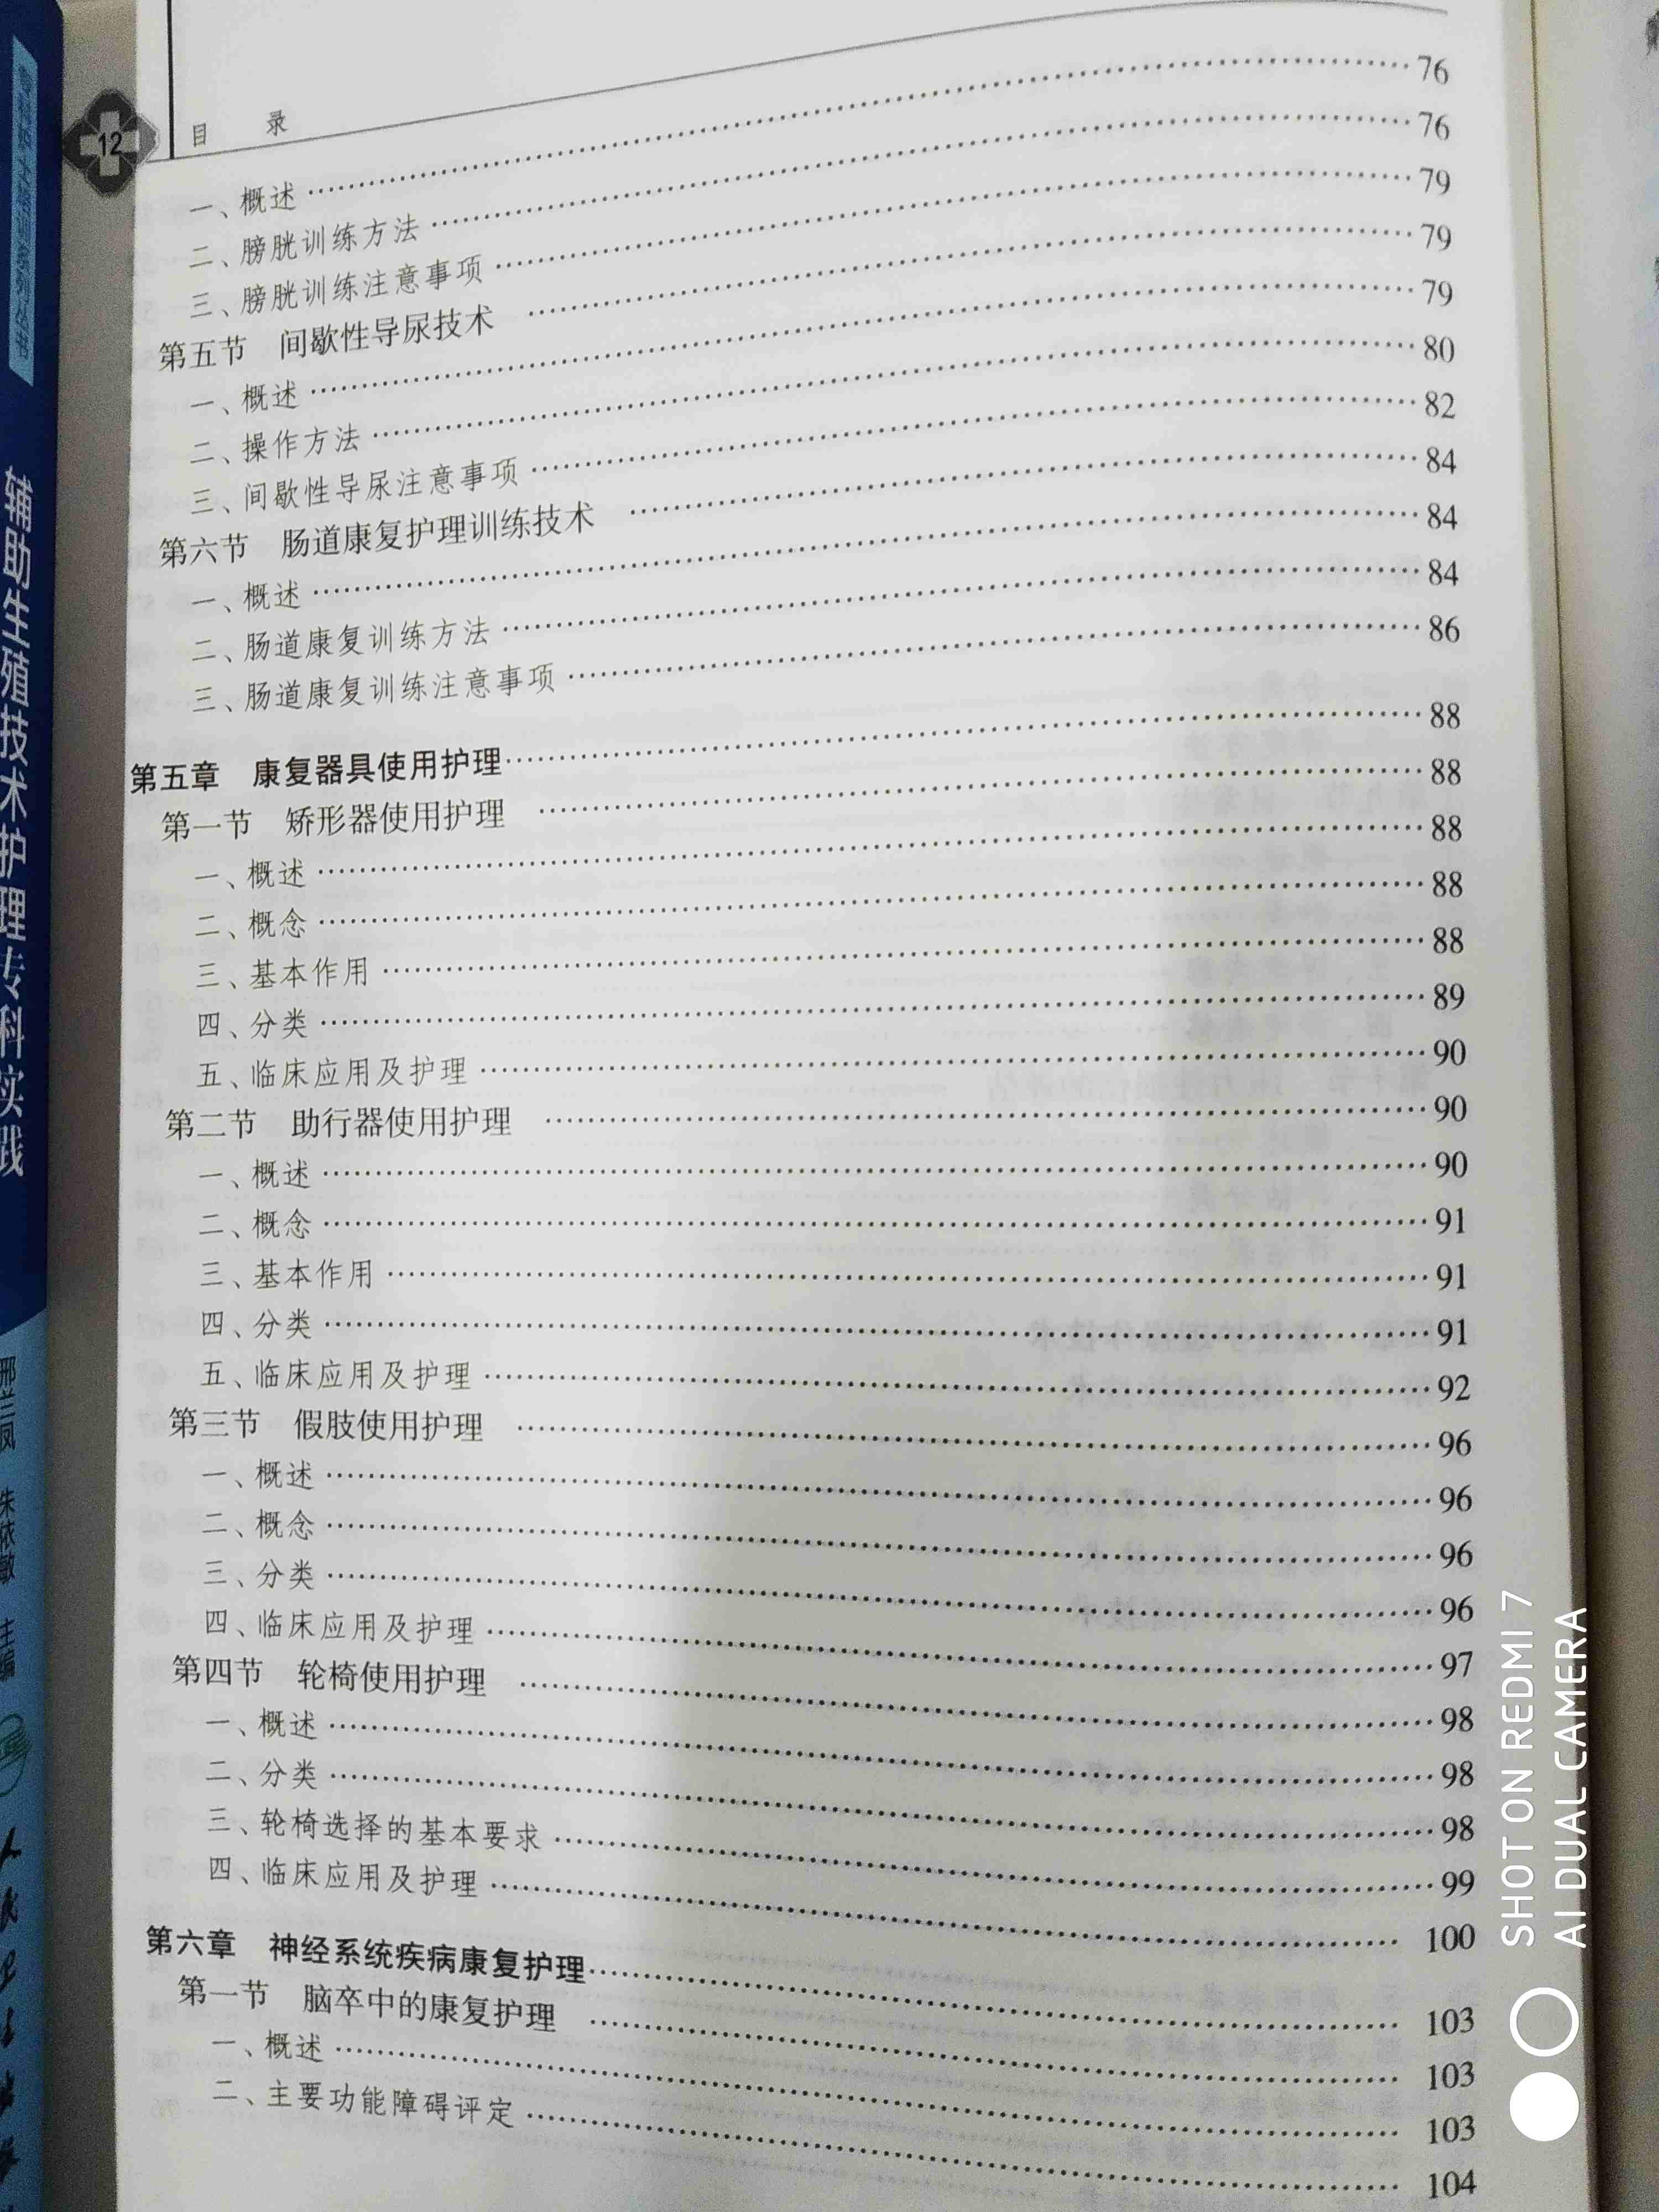 12
目 录
一、概述 76
二、膀胱训练方法 76
三、膀胱训练注意事项 79
第五节 间歇性导尿技术 79
一、概述 79
二、操作方法 80
三、间歇性导尿注意事项 82
第六节 肠道康复护理训练技术 84
一、概述 84
二、肠道康复训练方法 84
三、肠道康复训练注意事项 86
第五章 康复器具使用护理 88
第一节 矫形器使用护理 88
一、概述 88
二、概念 88
三、基本作用 88
四、分类 89
五、临床应用及护理 90
第二节 助行器使用护理 90
一、概述 90
二、概念 91
三、基本作用 91
四、分类 91
五、临床应用及护理 92
第三节 假肢使用护理 96
一、概述 96
二、概念 96
三、分类 96
四、临床应用及护理 97
第四节 轮椅使用护理 98
一、概述 98
二、分类 98
三、轮椅选择的基本要求 99
四、临床应用及护理 100
第六章 神经系统疾病康复护理 103
第一节 脑卒中的康复护理 103
一、概述 103
二、主要功能障碍评定 104
辅助生殖技术护理专科实践
邢兰凤 朱依敏 主编
SHOT ON REDMI 7
AI DUAL CAMERA